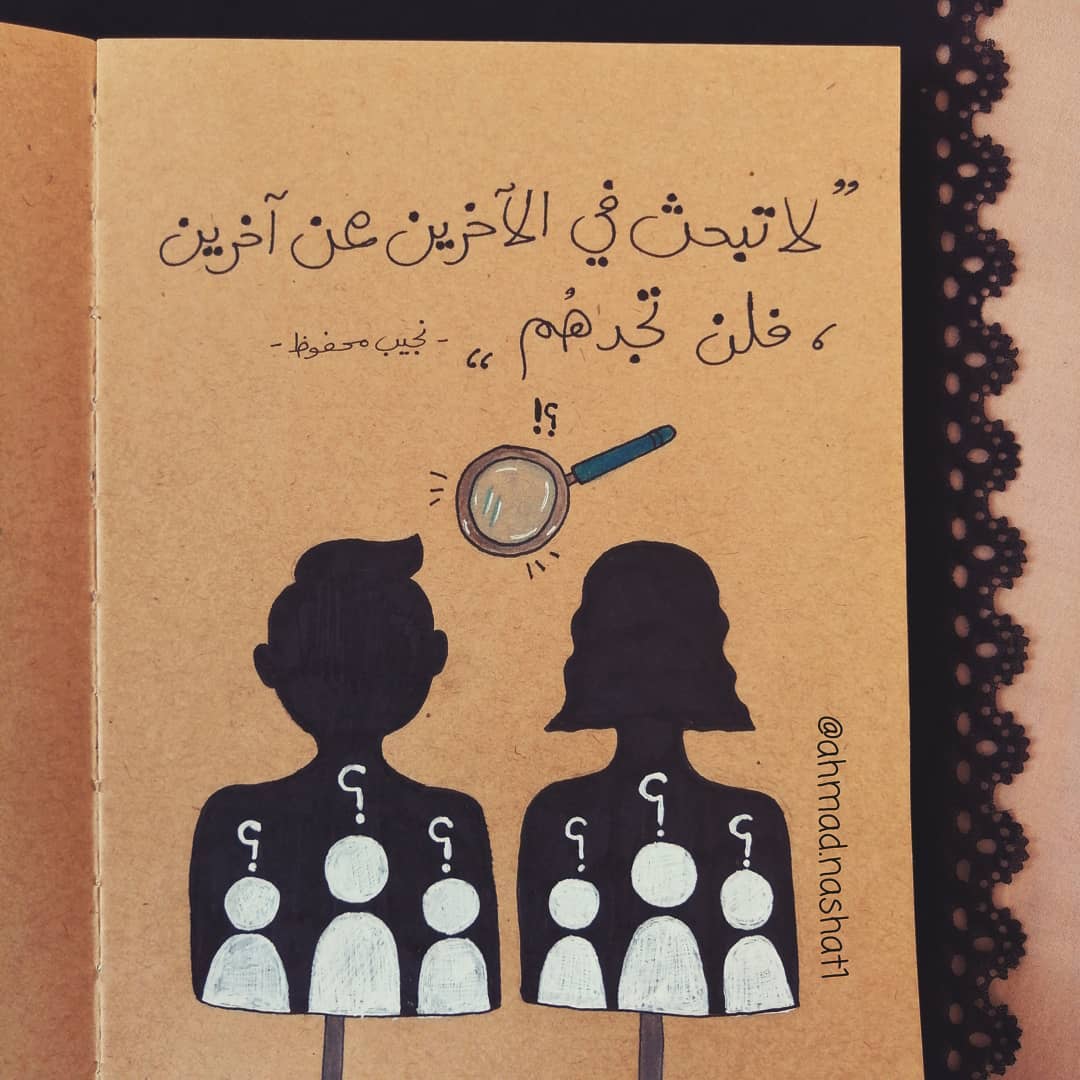 ” لا تبحث في الآخرين عن آخرين
، فلن تجدهُم “
- نجيب محفوظ -
؟!
؟ ؟ ؟ ؟ ؟ ؟
@ahmad.nashat1